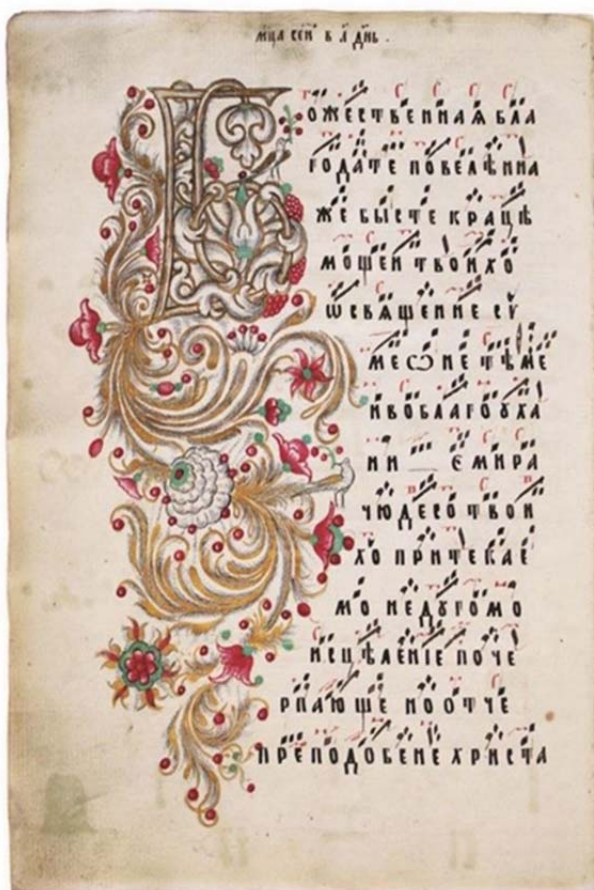 мц҃а сеⷩ҇ в а҃ дн҃ь .
Божественная бла
годате повелѣнна
же бысте к рацѣ
мощеи твоихо
ѡсвящение сѵ
меѡне тѣме
и во благоуха
ни е мира
чюдесо твои
хо притекае
мо недугомо
исцѣленїе поче
рпающе но отче
преподобене христа